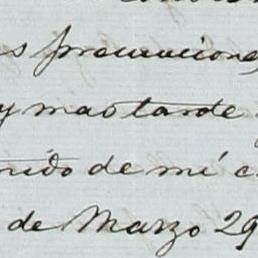 s precauciones
y mas tarde
nido de mi c
de Marzo 29